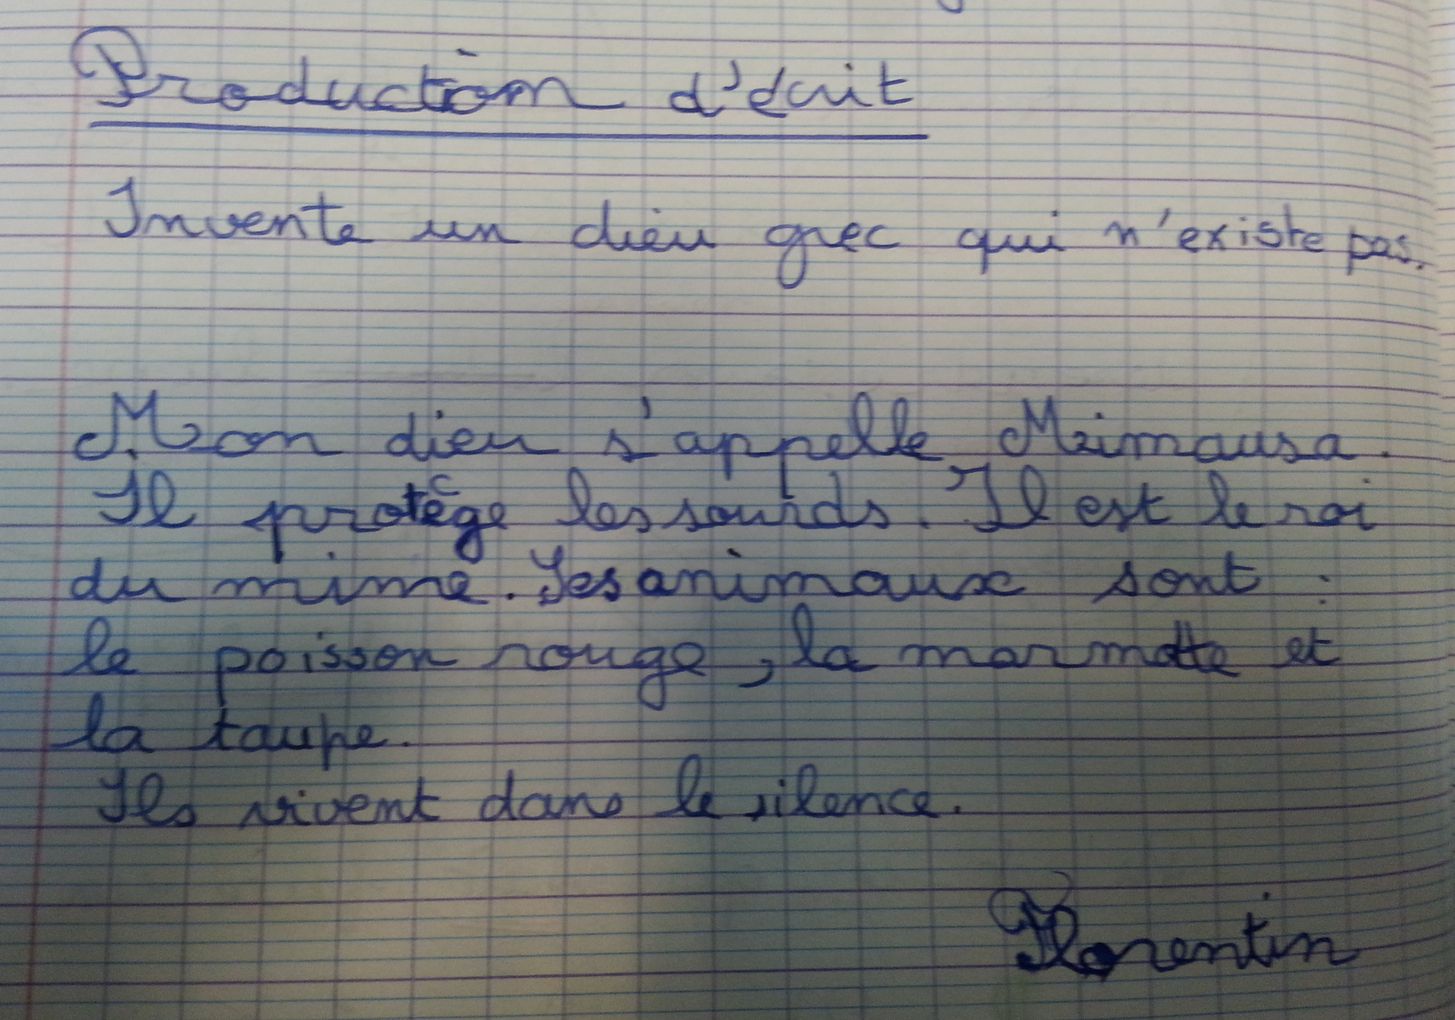 Production d'écrit
Invente un dieu grec qui n'existe pas.
Mon dieu s'appelle Mimausa.
Il protège les sourds. Il est le roi
du mime. Ses animaux sont :
le poisson rouge, la marmotte et
la taupe.
Ils vivent dans le silence.
Florentin